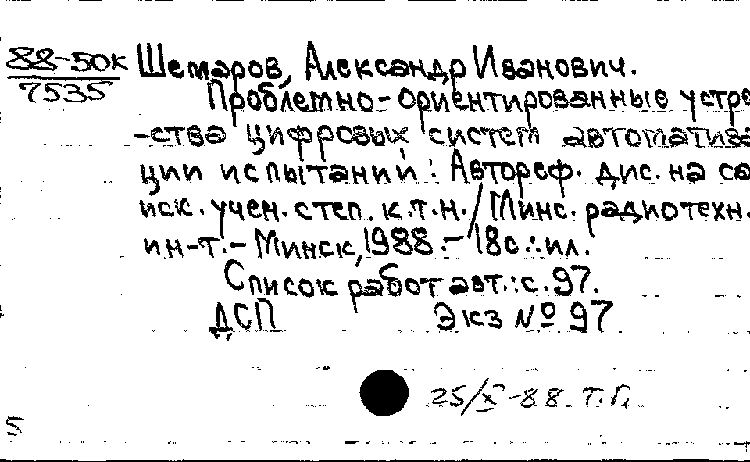 88-50к Шемаров, Александр Иванович.
7535 Проблемно-ориентированные устро
-ства цифровых систем автоматиза
ции испытаний : Автореф. дис. на со
иск. учен. степ. к.т.н. / Минс. радиотехн.
ин-т. - Минск, 1988. - 18с. : ил.
Список работ авт.: с. 97.
ДСП Экз № 97
25/X-88. Т.Г.
5